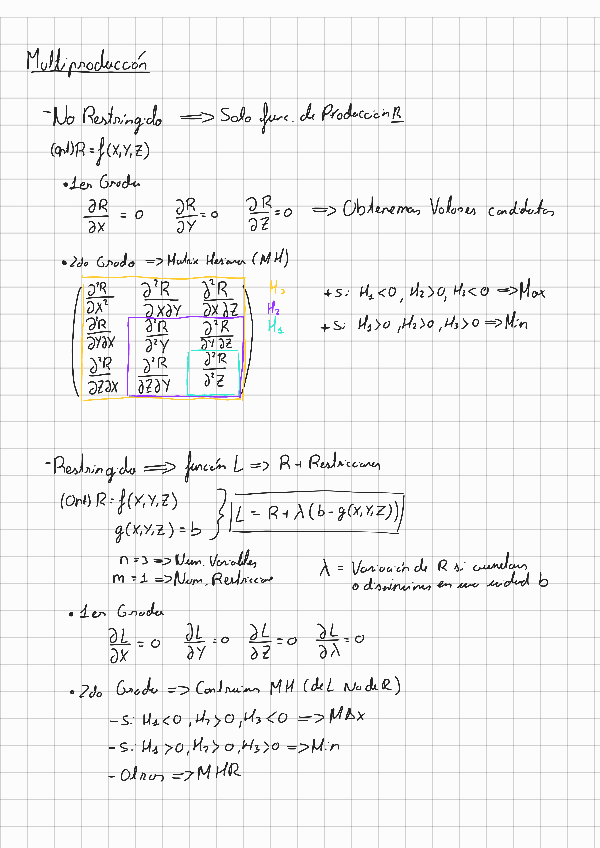 Multiproducción
- No Restringido ⟹ Solo func. de Producción R
(Opt) R = f(X,Y,Z)
• 1er Grado
∂R/∂X = 0  ∂R/∂Y = 0  ∂R/∂Z = 0 ⟹ Obtenemos Valores candidatos
• 2do Grado ⟹ Matriz Hessiana (MH)
∂²R/∂X²  ∂²R/∂X∂Y  ∂²R/∂X∂Z  H₃  + Si H₁<0, H₂>0, H₃<0 ⟹ Max
∂²R/∂Y∂X  ∂²R/∂²Y  ∂²R/∂Y∂Z  H₂  H₁  + Si H₁>0, H₂>0, H₃>0 ⟹ Min
∂²R/∂Z∂X  ∂²R/∂Z∂Y  ∂²R/∂²Z
- Restringido ⟹ función L ⟹ R + Restricciones
(Opt) R = f(X,Y,Z)
g(X,Y,Z) = b } L = R + λ(b - g(X,Y,Z))
n = 3 ⟹ Num. Variables
m = 1 ⟹ Num. Restriccion
λ = Variación de R si aumentan
o disminuimos en una unidad b
• 1er Grado
∂L/∂X = 0  ∂L/∂Y = 0  ∂L/∂Z = 0  ∂L/∂λ = 0
• 2do Grado ⟹ Construimos MH (de L No de R)
- Si H₁<0, H₂>0, H₃<0 ⟹ MAx
- Si H₁>0, H₂>0, H₃>0 ⟹ Min
- Otros ⟹ MHR